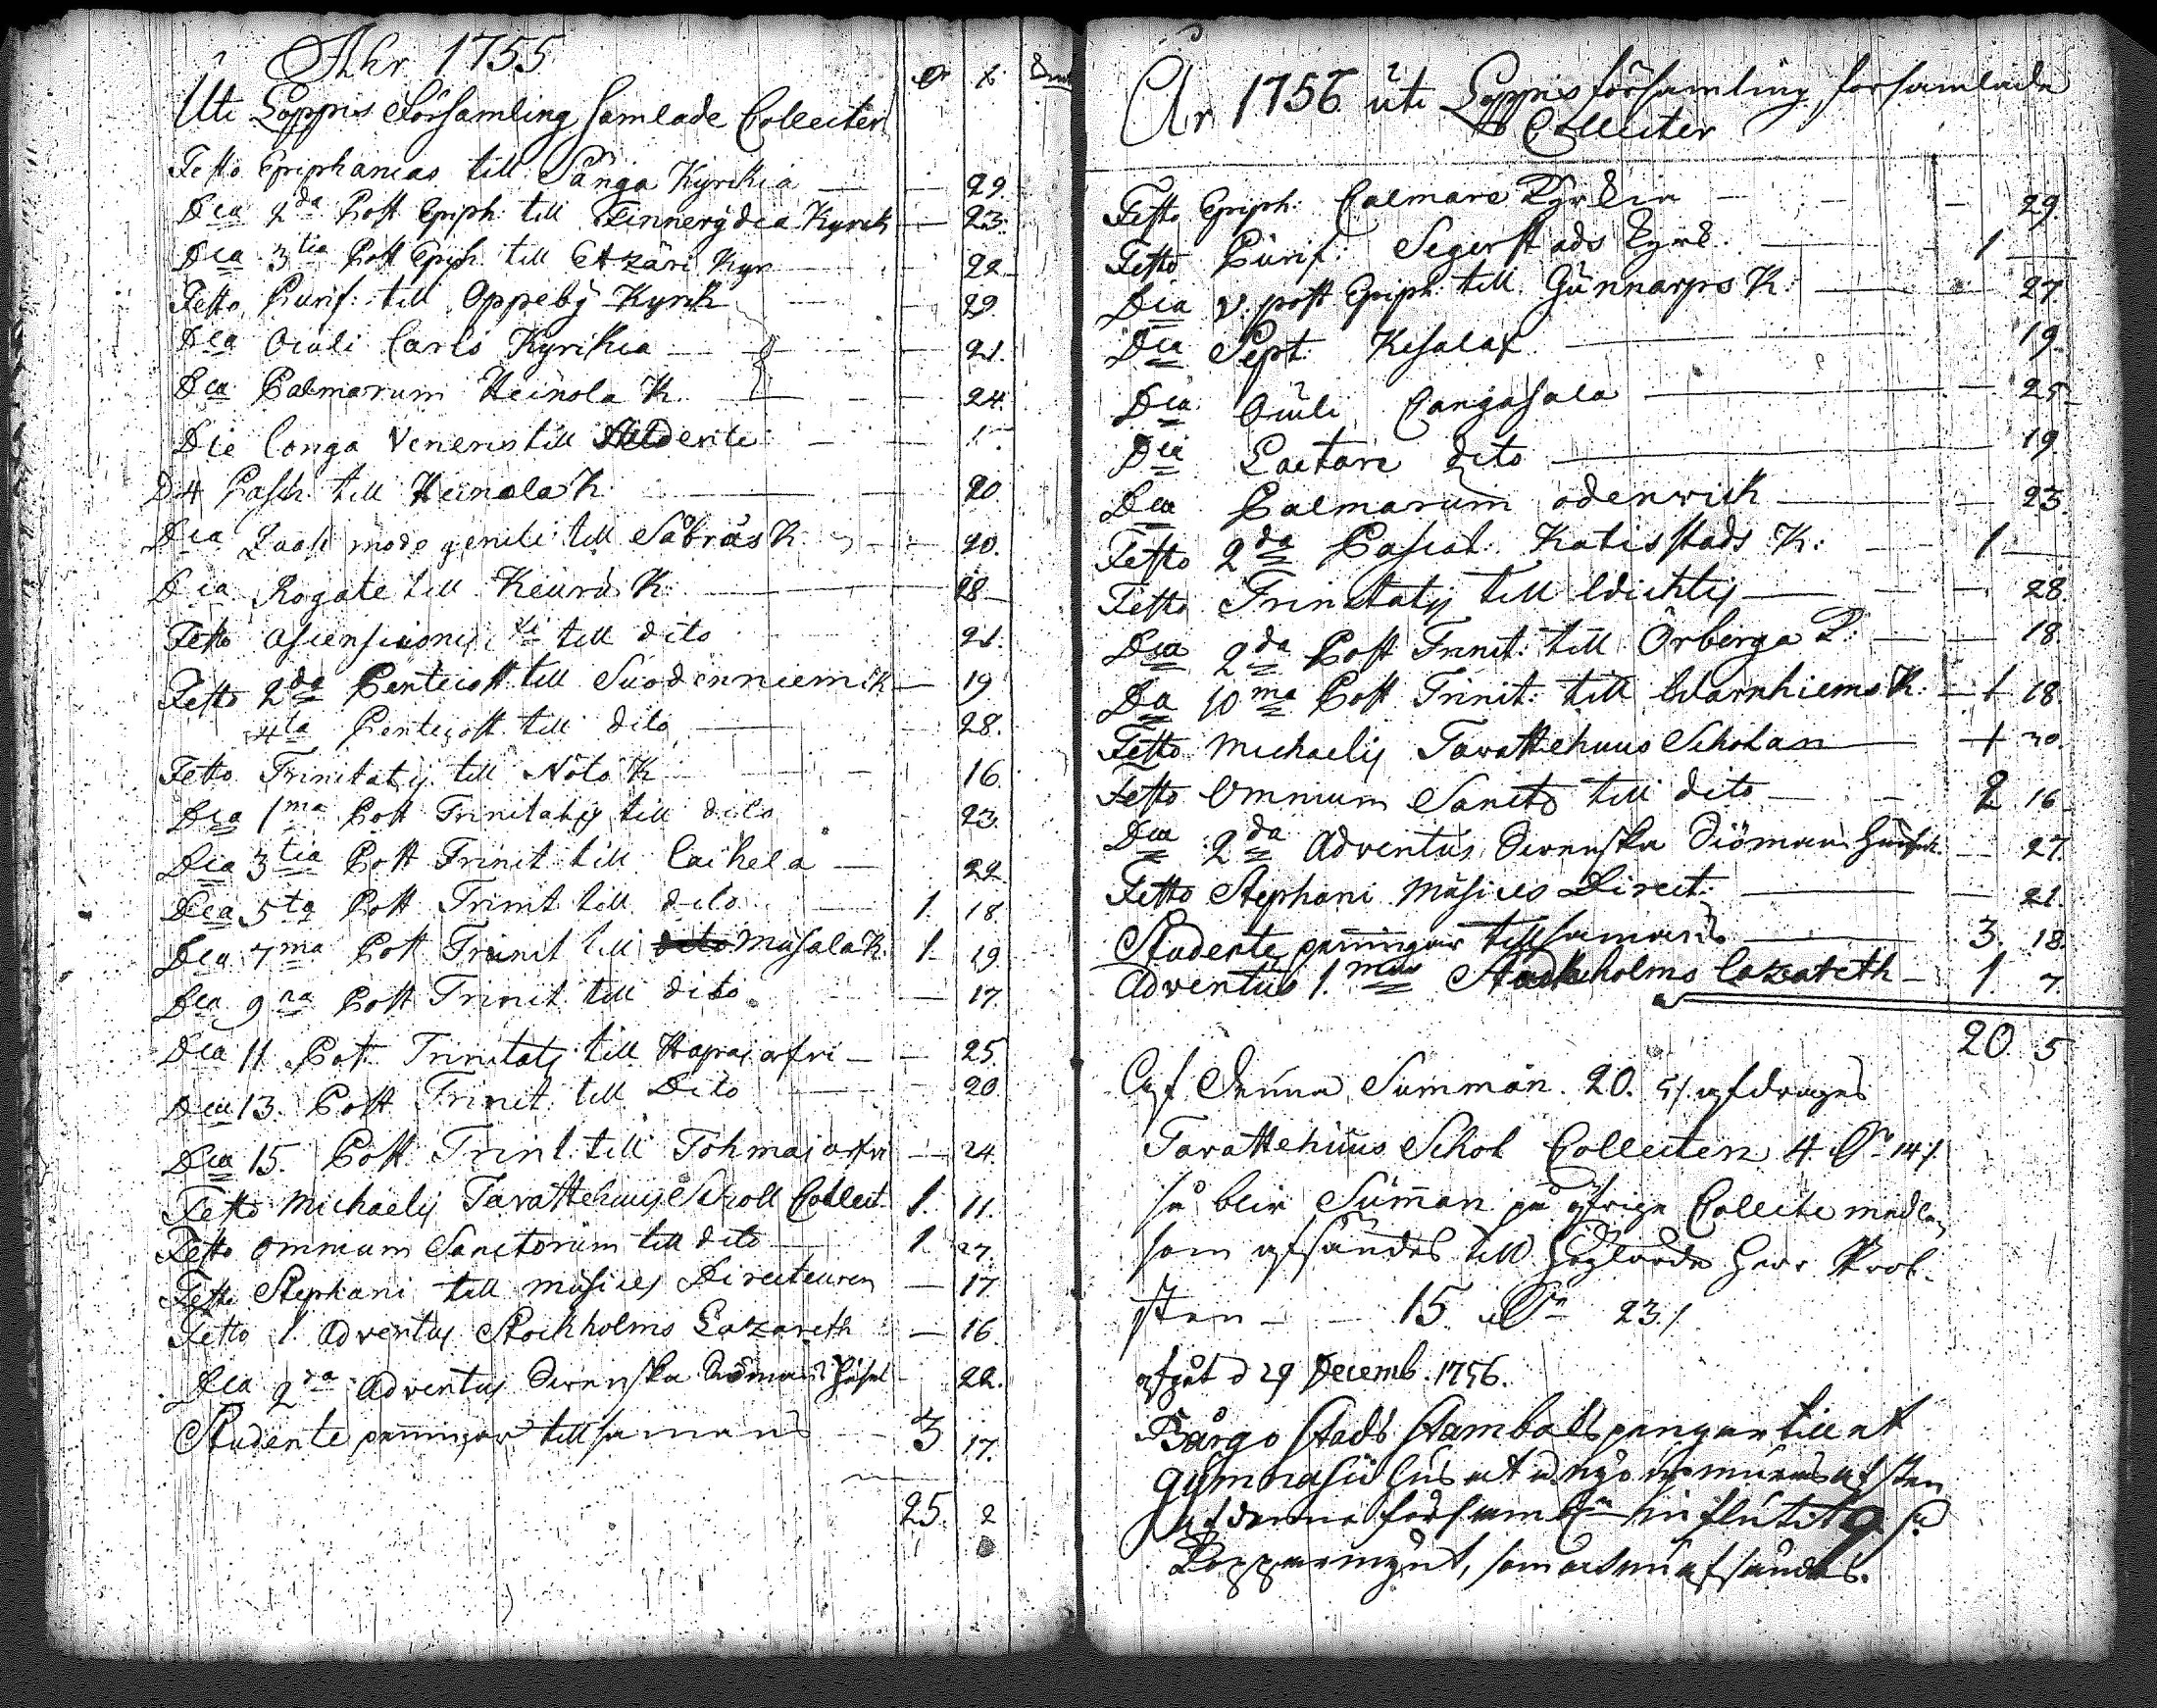 Åhr 1755
Uti Loppis Församling samlade Collecter
Festo Epiphanias till Sånga Kyrkia — 29.
Dca 2da Post Epiph: till Finnerydia Kyrck — 23.
Dca 3tia Post Epiph till Etzäri Kyr — 22
Festo Purif: till Oppeby Kyrk — 29.
Dca Oculi Carls Kyrikia — 21.
Dca Palmarum Heinola K. — 24.
Die longa Veneris till — 1
D 4 Pasch till Heinola K — 20.
Dca Quasi modo geniti till Säbrås K — 20.
Dca Rogate till Keuru K — 28
Festo ascensionis Xi till dito 21.
Festo 2da Pentecost till Suodenniemi K — 19
4ta Pentecost till dito — 28.
Festo Trinitatis till Nöto K — 16.
Dca 1ma Post Trinitatis till dito 23.
Dca 3tia Post Trinit till Laihela — 22
Dca 5ta Post Trinit till dito — 1. 18.
Dca 7ma Post Trinit till dito Musala K. 1. 19.
Dca 9na Post Trinit till dito — 17.
Dca 11 Post Trinitatis till Hapajarfvi — 25.
Dca 13. Post Trinit till Dito — 20.
Dca 15. Post Trinit till Tohmajarfvi — 24.
Festo Michaelis Tavastehuus Schol Collect 1. 11.
Festo Omnium Sanctorum till dito 1. 27.
Festo Stephani till Musices Directeuren — 17.
Festo 1. Adventus Stockholms Lazareth — 16.
Dca 2da Adventus Swenska Siömans Huset — 22.
Studente penningar tillsamans — 3 17.
25. 2
År 1756 uti Loppis församling församlade
Collecter
Festo Epiph: Calmare Kyrkia — 29
Festo Purif: Segerstads Kyrk. — 1 —
Dca V. post Epiph: till Gunnarps K: — 27
Dca Sept: Kesalax — 19.
Dca Oculi Cangasala — 25
Dca Laetare dito — 19
Dca Palmarum odenwich — 23.
Festo 2da Pascat. Katisstads K: — 1 —
Festo Trinitatis till Wichtis — 28
Dca 2da Post Trinit: till Örberga K: — 18.
Dca 10ma Post Trinit: till Warnhiems K: — 1 18.
Festo Michaelis Tavastehuus Scholan — 1 30.
Festo Omnium Sancto till dito — 2 16
Dca 2da Adventus Swenska Siömans Huset — 27.
Festo Stephani Musices Direct: — 21.
Studente penningar tillsamans — 3. 18.
Adventus 1.mus Stockholms Lazareth — 1 7.
20 5
Af denna Summan 20. 5/. afdrages
Tavastehuus Schol Collecten 4 Dr 14/.
så blir Summan på öfrige Collecte medlen
som afsändes till Höglärde Herr Prob-
sten — 15 Dr 23/.
afgåt d 29 Decemb. 1756.
Bårgo Stads Stambolls pengar till et
gymnasii hus at å nyo upmuras af sten
af denna församl:n influtit 9
Koppermynt, som ock nu afsändes.